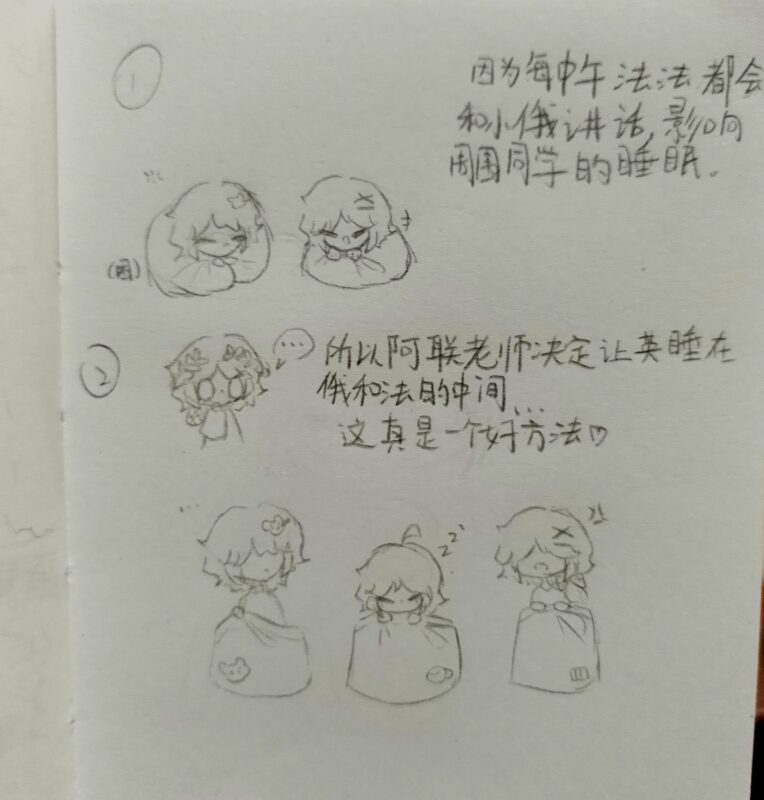 1
因为每中午法法都会
和小俄讲话,影响
周围同学的睡眠。
(困)
2
...
所以阿联老师决定让英睡在
俄和法的中间...
这真是一个好方法♡
...
zz